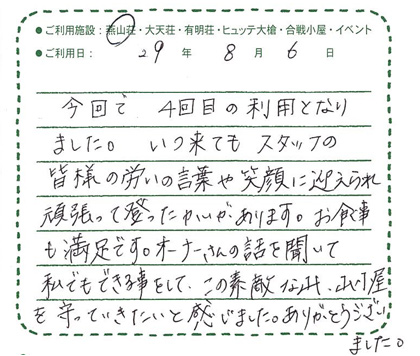 ●ご利用施設：燕山荘・大天荘・有明荘・ヒュッテ大槍・合戦小屋・イベント
●ご利用日： 29 年 8 月 6 日
今回で 4回目の利用となり
ました。 いつ来ても スタッフの
皆様の労いの言葉や笑顔に迎えられ
頑張って登ったかいがあります。お食事
も満足です。オーナーさんの話を聞いて
私でもできる事をして、この素敵な山、山小屋
を守っていきたいと感じました。ありがとうござい
ました。